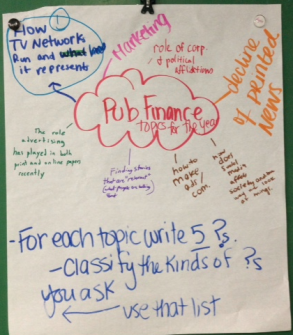 How
TV Network
Run and what
it represents
Marketing
role of corp.
& political
affiliations
decline
of printed
News
Pub Finance
topics for the year
The role
advertising
has played in both
print and online papers
recently
Finding stories
that are "relevant"
how to
make
ads/
com.
how
does
social
media
affect
society
-For each topic write 5 ?s.
-Classify the kinds of ?s
you ask
use that list